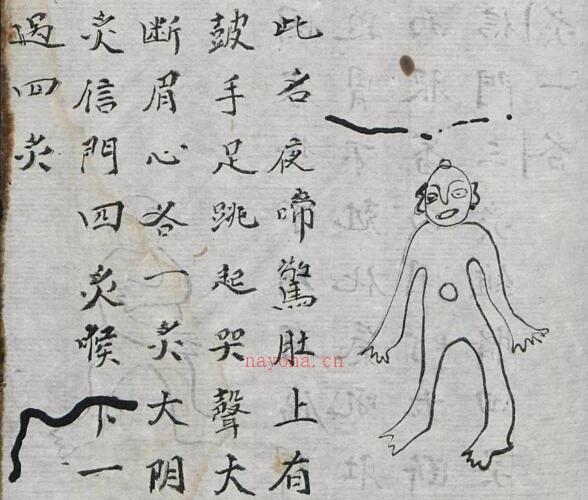 此名夜啼驚肚上有
皷手足跳起哭聲大
断眉心各一炙大阴
炙信門四炙喉下一
過四炙
nayona.cn